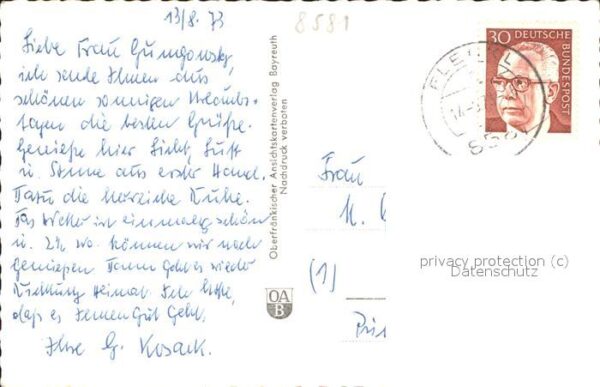 13/8. 73
8581
Liebe Frau
ich sende Ihnen aus
schönen sonnigen Urlaubs-
tagen die besten Grüße.
Genieße hier Licht, Luft
u. Sonne aus erster Hand.
Dazu die herrliche Ruhe.
Das Wetter ist einmalig schön
u. 2½ Wo. können wir noch
genießen. Dann geht es wieder
Richtung Heimat. Ich hoffe,
daß es Ihnen gut geht.
Ihre G. Kosack.
Oberfränkischer Ansichtskartenverlag Bayreuth
Nachdruck verboten
OA
B
30
DEUTSCHE
BUNDESPOST
Frau
M.
(1)
privacy protection (c)
Datenschutz